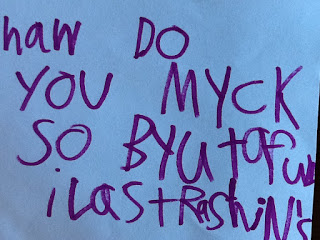 haw DO
YOU MYCK
SO BYUtAfWl
iLastRAShiN's